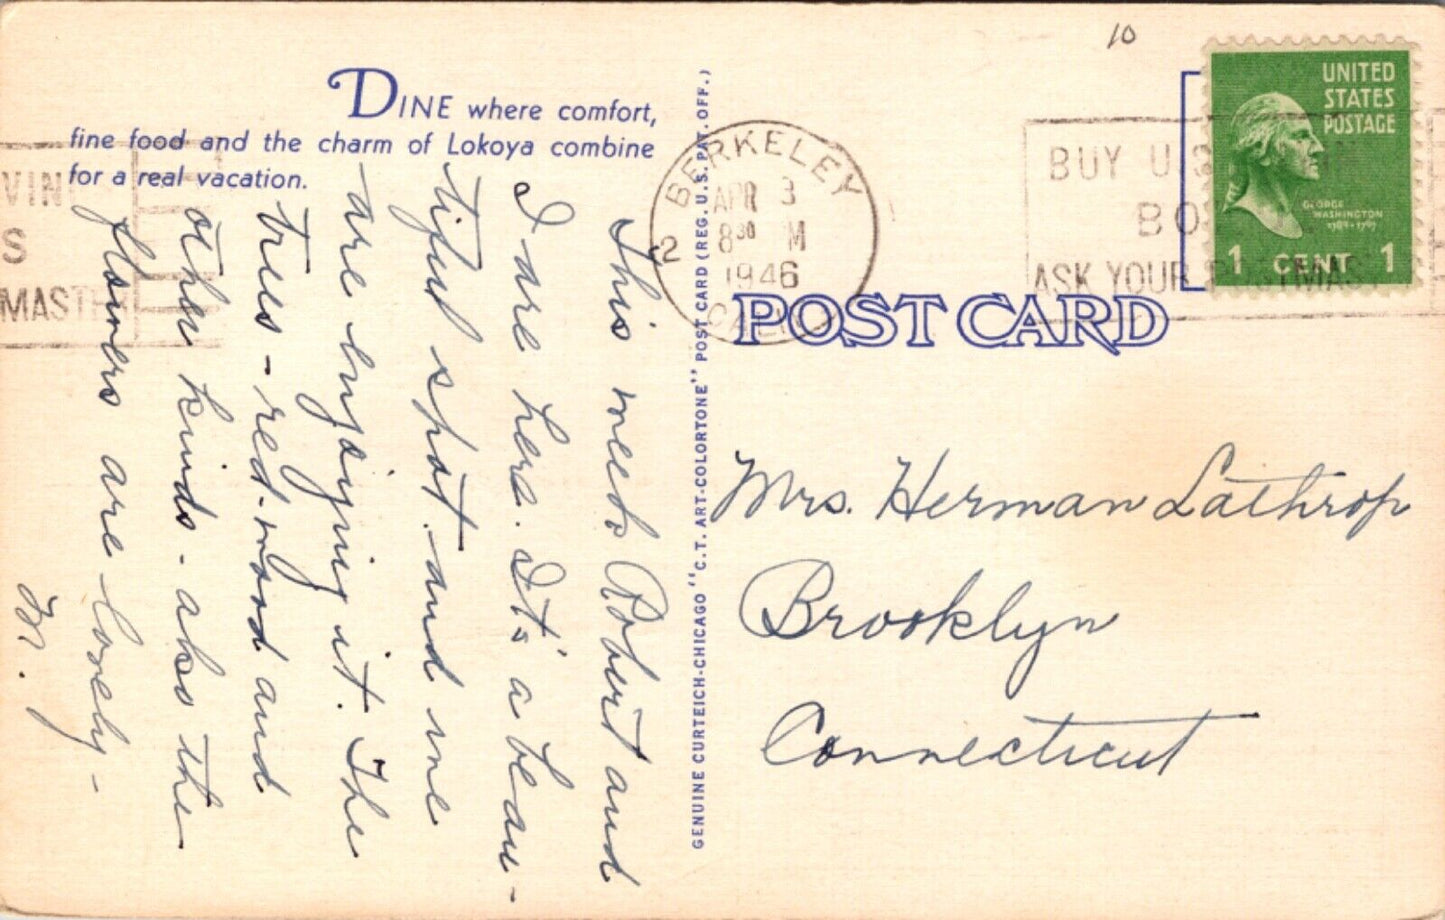 10
DINE where comfort,
fine food and the charm of Lokoya combine
for a real vacation.
This week Robert and
I are here. It's a beau-
tiful spot and we
are enjoying it. The
trees - red-wood and
other kinds - also the
flowers are lovely -
M.
GENUINE CURTEICH-CHICAGO "C.T. ART-COLORTONE" POST CARD (REG. U.S. PAT. OFF.)
BERKELEY
APR 3
8 30 M
1946
CALIF.
2
VIN
S
MAST
BUY U.S.
BO
ASK YOUR POSTMAST
UNITED
STATES
POSTAGE
GEORGE
WASHINGTON
1789-1797
1 CENT 1
POST CARD
Mrs. Herman Lathrop
Brooklyn
Connecticut